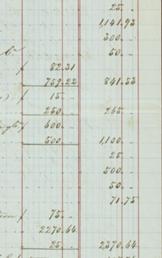 25.
1,141.93
300.
50.
82.31
759.22 841.53
15.
250. 265.
600.
500. 1,100.
25.
500.
50.
71.75
75.
2270.64
25. 2370.64